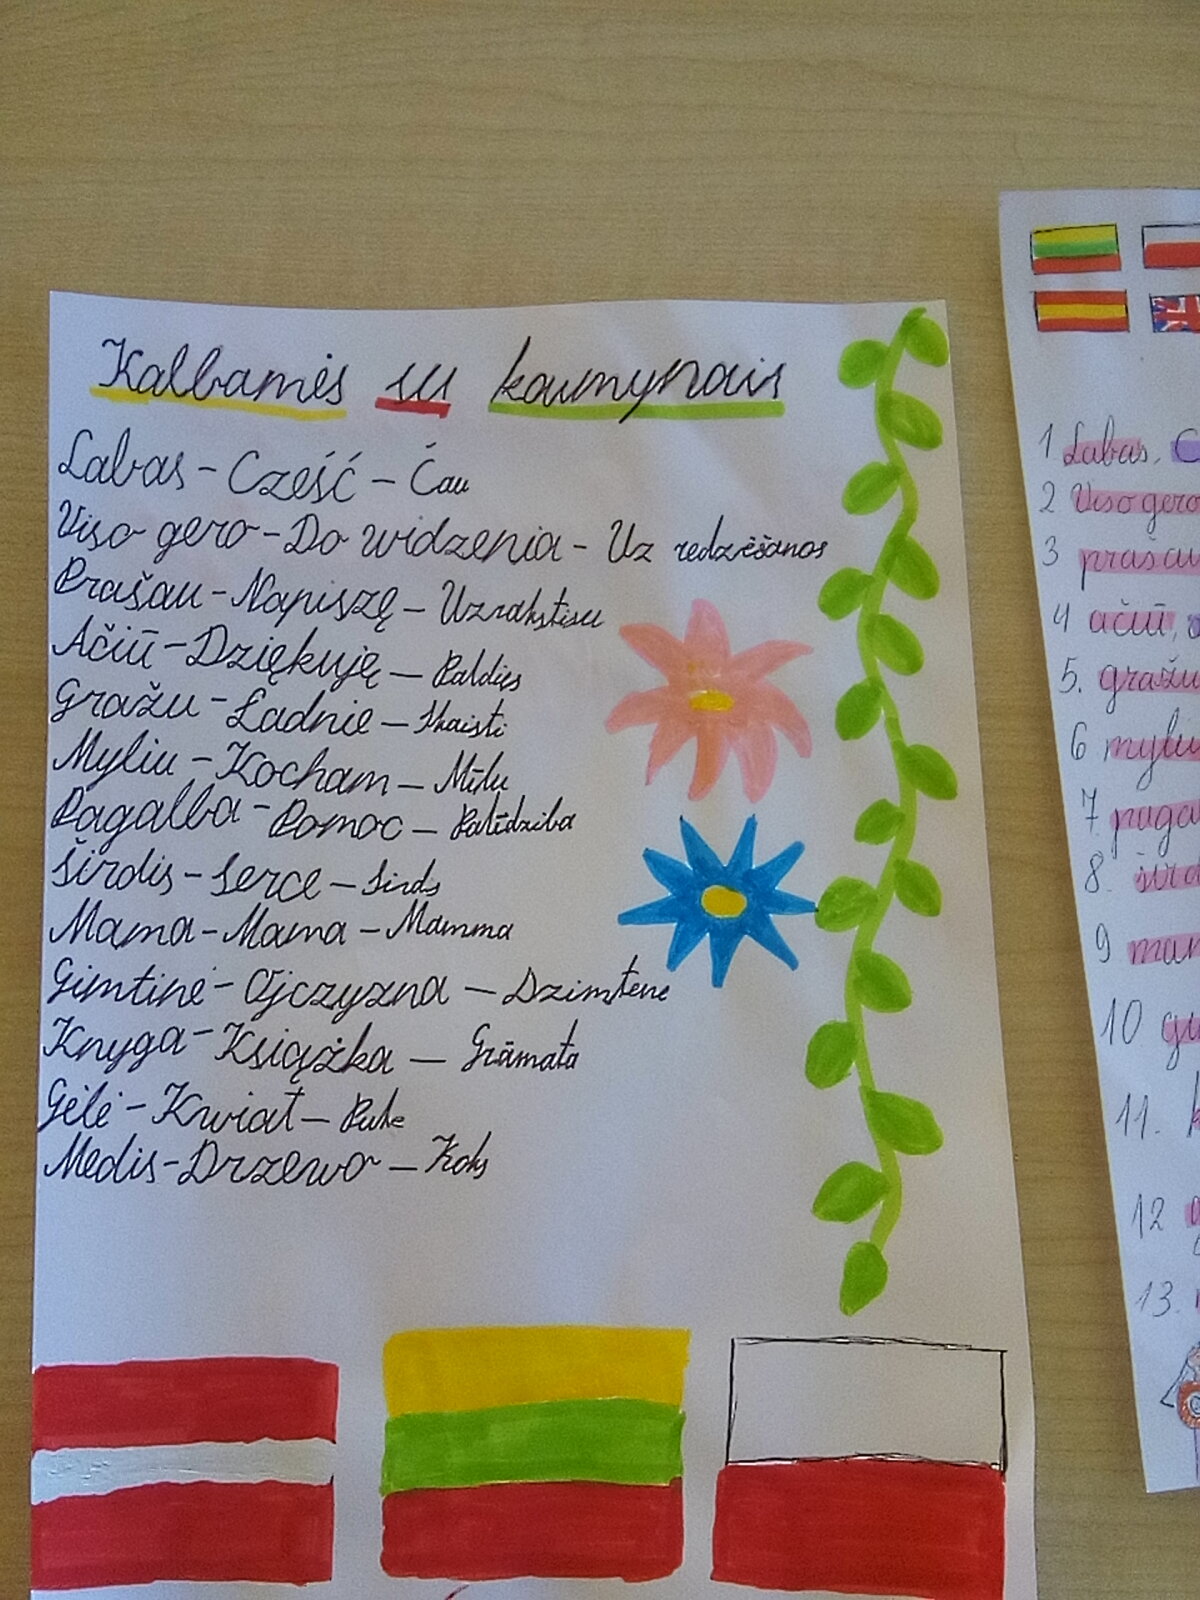 Kalbamės su kaimynais
Labas - Cześć - Ćau
Viso gero - Do widzenia - Uz redzēšanos
Prašau - Napiszę - Uzrakstisu
Ačiū - Dziękuję - Paldies
Gražu - Ładnie - Skaisti
Myliu - Kocham - Mīlu
Pagalba - Pomoc - Palīdzība
Širdis - Serce - Sirds
Mama - Mama - Mamma
Gimtinė - Ojczyzna - Dzimtene
Knyga - Książka - Grāmata
Gėlė - Kwiat - Puķe
Medis - Drzewo - Koks
1 Labas, C
2 Viso gero
3 prašau
4 ačiū,
5. gražu
6 myliu
7. paga
8. šird
9 mam
10 gi
11. k
12
13.